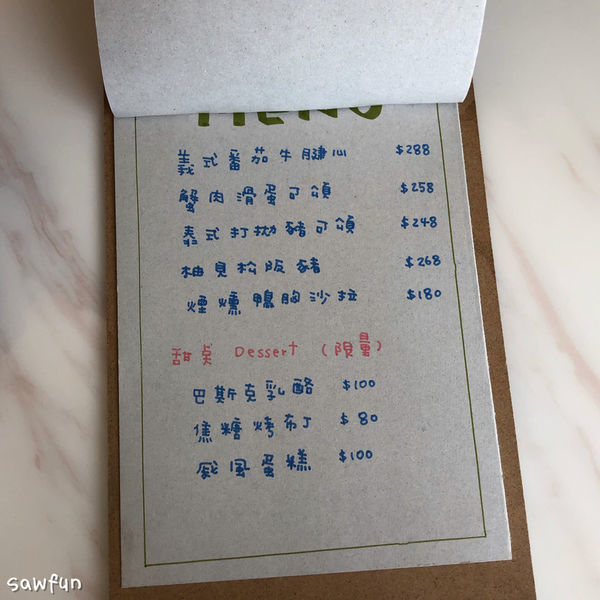 MENU
義式番茄牛腱心 $288
蟹肉滑蛋可頌 $258
泰式打拋豬可頌 $248
柚見松阪豬 $268
煙燻鴨胸沙拉 $180
甜点 Dessert (限量)
巴斯克乳酪 $100
焦糖烤布丁 $80
戚風蛋糕 $100
sawfun